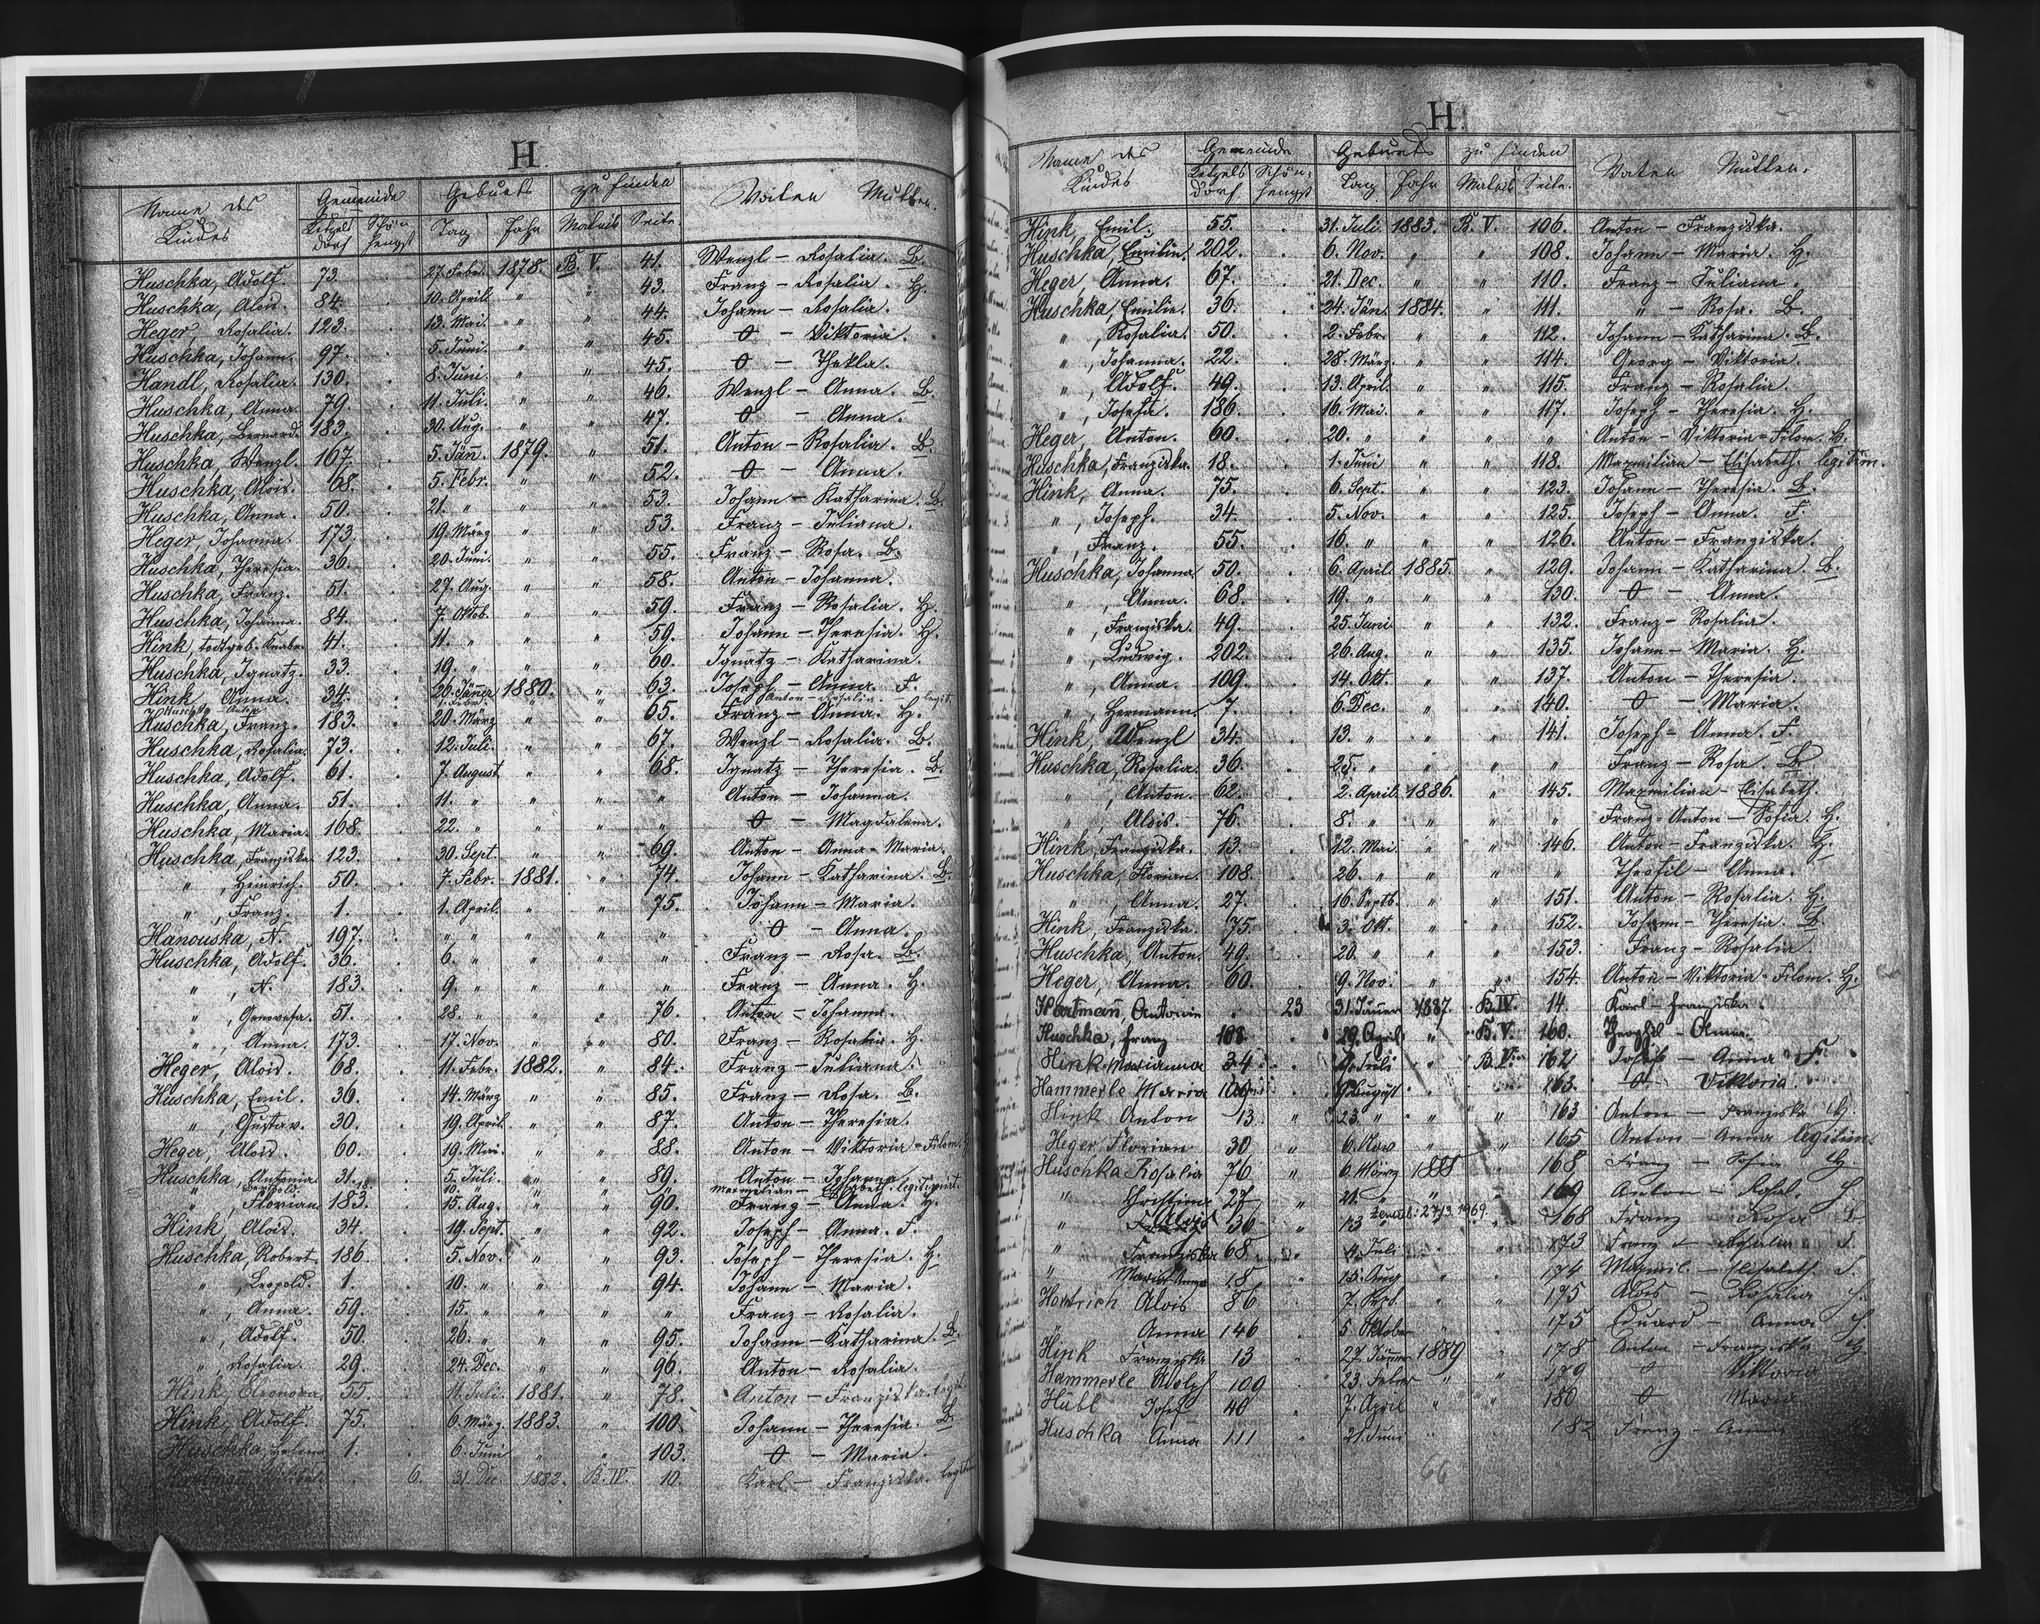 H.
Name des Kindes Gemeinde Geburt zu finden Vater Mutter.
Litzelsdorf Schönhengst Tag Jahr Matrik Seite.
Huschka, Adolf. 73. 27. Febr. 1878. B. V. 41. Wenzl - Rosalia. B.
Huschka, Alois. 84. 10. April " " 43. Franz - Rosalia. H.
Heger, Rosalia. 123. 13. Mai. " " 44. Johann - Rosalia.
Huschka, Johann. 97. 5. Juni. " " 45. O - Viktoria.
Handl, Rosalia. 130. 8. Juni. " " 45. O - Thekla.
Huschka, Anna. 79. 11. Juli. " " 46. Wenzl - Anna. B.
Huschka, Bernard. 183. 30. Aug. " " 47. O - Anna.
Huschka, Wenzl. 167. 5. Jän. 1879. " 51. Anton - Rosalia. B.
Huschka, Alois. 68. 5. Febr. " " 52. O - Anna.
Huschka, Anna. 50. 21. " " " 53. Johann - Katharina. B.
Heger, Johanna. 173. 19. März " " 53. Franz - Juliana.
Huschka, Theresia. 36. 20. Juni. " " 55. Franz - Rosa. B.
Huschka, Franz. 51. 27. Aug. " " 58. Anton - Johanna.
Huschka, Johanna. 84. 7. Oktob. " " 59. Franz - Rosalia. H.
Hink, todtgeb. Knabe. 41. 11. " " " 59. Johann - Theresia. H.
Huschka, Ignatz. 33. 19. " " " 60. Ignatz - Katharina.
Hink, Anna. 34. 26. Jäner 1880. " 63. Joseph - Anna. F.
Huschka Anton - Rosalia. legit.
Huschka, Franz. 183. 20. März " " 65. Franz - Anna. H.
Huschka, Rosalia. 73. 12. Juli. " " 67. Wenzl - Rosalia. B.
Huschka, Adolf. 61. 7. August " " 68. Ignatz - Theresia. B.
Huschka, Anna. 51. 11. " " " " Anton - Johanna.
Huschka, Maria. 168. 22. " " " " O - Magdalena.
Huschka, Franziska. 123. 30. Sept. " " 69. Anton - Anna-Maria.
" , Heinrich. 50. 7. Febr. 1881. " 74. Johann - Katharina. B.
" , Franz. 1. 1. April. " " 75. Johann - Maria.
Hanouska, N. 197. " " " " " O - Anna.
Huschka, Adolf. 36. 6. " " " " Franz - Rosa. B.
" , N. 183. 9. " " " " Franz - Anna. H.
" , Genovefa. 51. 28. " " " 76. Anton - Johanna.
" , Anna. 173. 17. Nov. " " 80. Franz - Rosalia. H.
Heger, Alois. 68. 11. Febr. 1882. " 84. Franz - Juliana.
Huschka, Emil. 36. 14. März " " 85. Franz - Rosa. B.
" , Gustav. 30. 19. April. " " 87. Anton - Theresia.
Heger, Alois. 60. 19. Mai. " " 88. Anton - Viktoria-Filom.
Huschka, Antonia 31. 5. Juli. " " 89. Anton - Johanna
" Leopold. 18. 10. " Maxmilian - Elisabeth. legitimirt.
" , Florian 183. 15. Aug. " " 90. Franz - Anna. H.
Hink, Alois. 34. 19. Sept. " " 92. Joseph - Anna. F.
Huschka, Robert. 186. 5. Nov. " " 93. Joseph - Theresia. H.
" , Leopold. 1. 10. " " " 94. Johann - Maria.
" , Anna. 59. 15. " " " " Franz - Rosalia.
" , Adolf. 50. 26. " " " 95. Johann - Katharina. B.
" , Rosalia. 29. 24. Dec. " " 96. Anton - Rosalia.
Hink, Eleonora. 55. 11. Juli. 1881. " 78. Anton - Franziska. legit.
Hink, Adolf. 75. 6. März. 1883. " 100. Johann - Theresia. B.
Huschka, 1. 6. Juni " " 103. O - Maria.
6. 31. Dec. 1882. B. IV. 10. Karl - Franziska. legitim
H.
Name des Kindes Gemeinde Geburt zu finden Vater Mutter.
Litzelsdorf Schönhengst Tag Jahr Matrik Seite.
Hink, Emil. 55. 31. Juli. 1883. B. V. 106. Anton - Franziska.
Huschka, Emilie. 202. 6. Nov. " " 108. Johann - Maria. H.
Heger, Anna. 67. 21. Dec. " " 110. Franz - Juliana.
Huschka, Emilie. 36. 24. Jän. 1884. " 111. " - Rosa. B.
" , Rosalia. 50. 2. Febr. " " 112. Johann - Katharina. B.
" , Johanna. 22. 28. März. " " 114. Georg - Viktoria.
" , Adolf. 49. 13. April. " " 115. Franz - Rosalia.
" , Josefa. 186. 16. Mai. " " 117. Joseph - Theresia. H.
Heger, Anton. 60. 20. " " " " Anton - Viktoria-Filom. H.
Huschka, Franziska. 18. 1. Juni " " 118. Maxmilian - Elisabeth. legitim.
Hink, Anna. 75. 6. Sept. " " 123. Johann - Theresia. B.
" , Joseph. 34. 5. Nov. " " 125. Joseph - Anna. F.
" , Franz. 55. 16. " " " 126. Anton - Franziska.
Huschka, Johanna. 50. 6. April. 1885. " 129. Johann - Katharina. B.
" , Anna. 68. 19. " " " 130. O - Anna.
" , Franziska. 49. 25. Juni " " 132. Franz - Rosalia.
" , Ludwig. 202. 26. Aug. " " 135. Johann - Maria. H.
" , Anna. 109. 14. Okt. " " 137. Anton - Theresia.
" , Hermann. 7. 6. Dec. " " 140. O - Maria.
Hink, Wenzl 34. 13. " " " 141. Joseph - Anna. F.
Huschka, Rosalia. 36. 25. " " " " Franz - Rosa. B.
" , Anton. 62. 2. April. 1886. " 145. Maxmilian - Elisabeth.
" , Alois. 76. 8. " " " " Franz-Anton - Sofia. H.
Hink, Franziska. 13. 12. Mai. " " 146. Anton - Franziska. H.
Huschka, Florian. 108. 26. " " " " Theofil - Anna.
" , Anna. 27. 16. Septb. " " 151. Anton - Rosalia. H.
Hink, Franziska. 75. 3. Okt. " " 152. Johann - Theresia. B.
Huschka, Anton. 49. 20. " " " 153. Franz - Rosalia.
Heger, Anna. 60. 9. Nov. " " 154. Anton - Viktoria-Filom. H.
Hartman Antonin " 23 31. Jänner 1887. B. IV. 14. Karl - Franziska.
Huschka, Franz 108. 29. April " B. V. 160. Theofil - Anna.
Hink Marianna 34 9. Juli B. V. 162 Josef - Anna F.
Hammerle Maria 109 9 August " 163. O - Viktoria.
Hink Anton 13 " 23. " " " 163 Anton - Franziska H.
Heger Florian 30 " 6. Nov " " 165 Anton - Anna legitim.
Huschka Rosalia 76 " 6. März 1888 " 168 Franz - Sofia H.
" Christina 27 " 21. " " 169 Anton - Rosal. H
" Alois 36 " 13 " zemřel: 27/3. 1969. 168 Franz - Rosa
" Franziska 68 4. Juli " " 173 Franz - Rosalia
" Maria Anna 18 15. Aug " " 174 Maxmil. - Elisabeth
Hortrich Alois 86 7. Sept. " 175 Alois - Rosalia
" Anna 146 5 Oktober " 175 Eduard - Anna
Hink Franziska 13 " 27. Jänner 1889 " 178 Anton - Franziska H.
Hammerle Adolf 109 23. Feber " " 179 O Viktoria
Hübl Josef 40 " 7. April " " 180 O Maria
Huschka Anna 111 " 21. Juni " 182 Franz - Anna
66